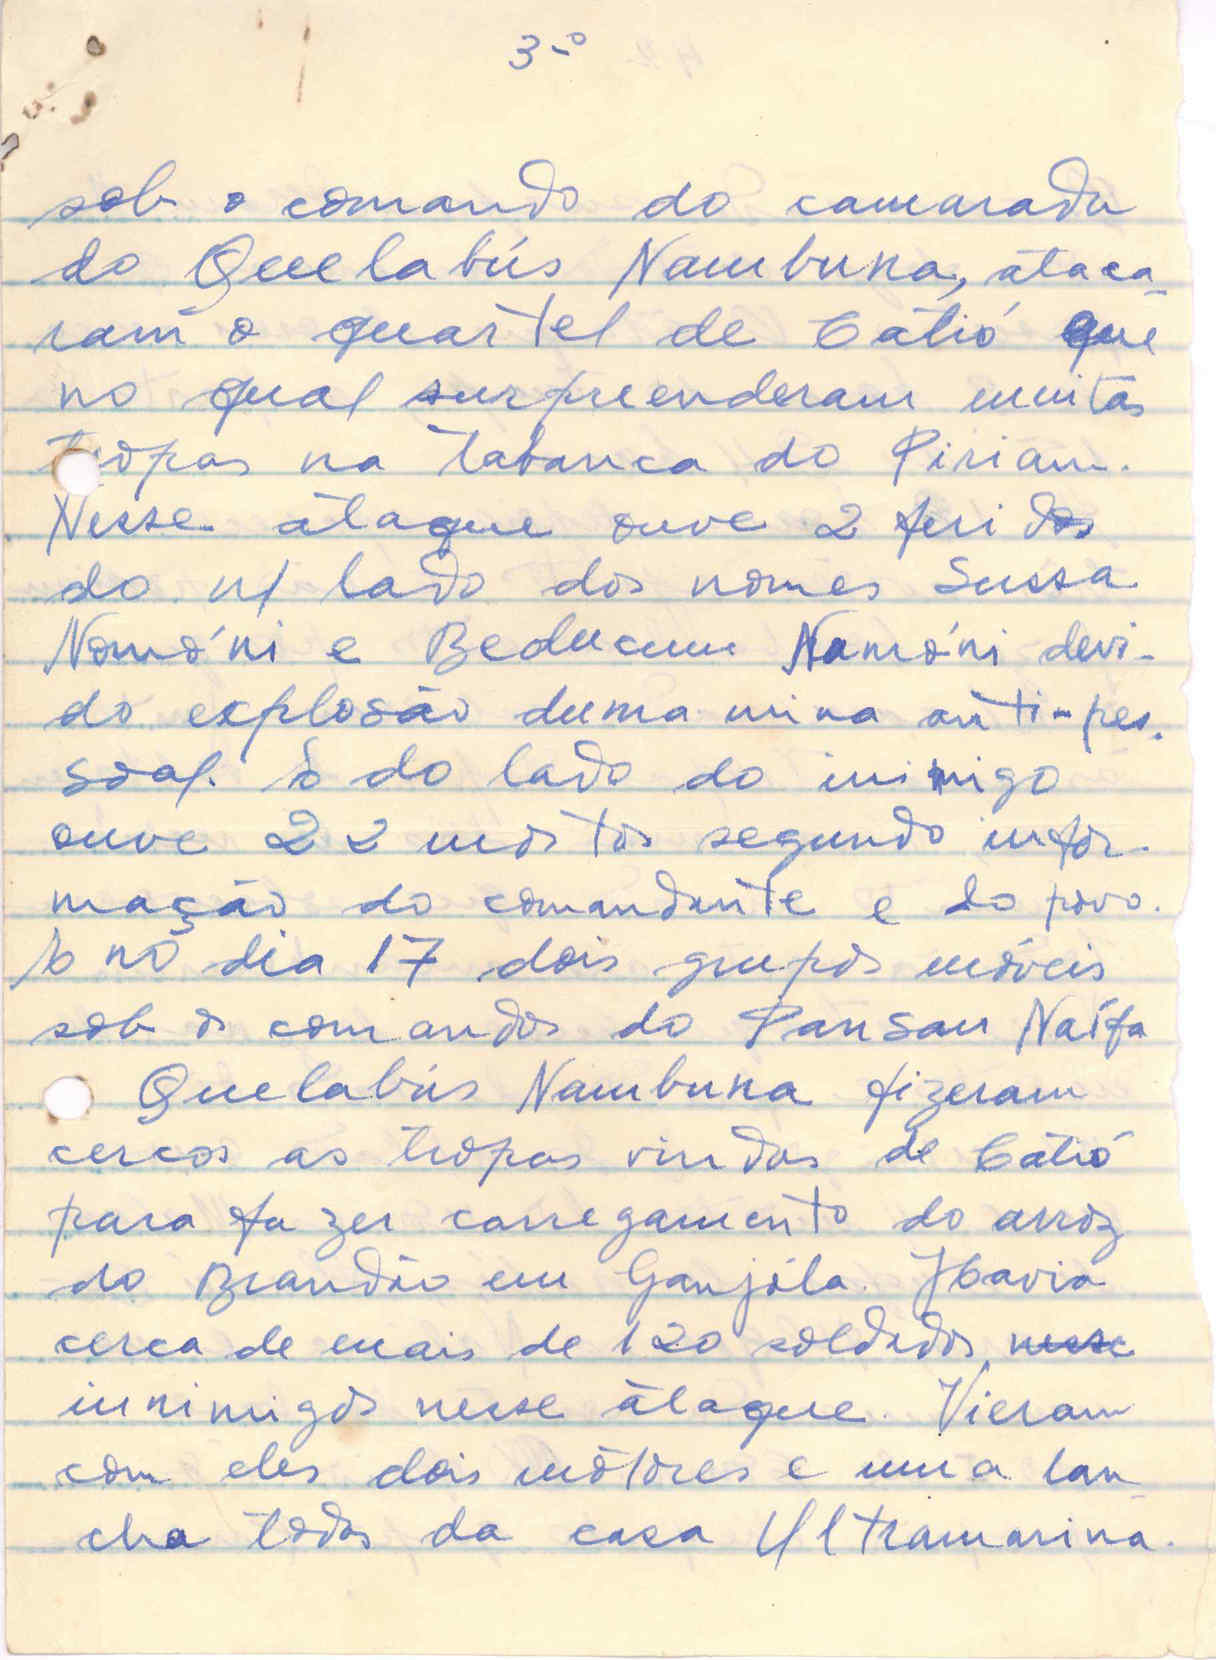 3-º
sob o comando do camarada
do Quelabús Nambuna, ataca-
ram o quartel de Catió que
no qual surpreenderam muitas
tropas na tabanca do Piriam.
Nesse ataque ouve 2 feridos
do n/ lado dos nomes Sussa
Nomó'ni e Beducum Namó'ni devi-
do explosão duma mina anti-pes-
soal. E do lado do inimigo
ouve 22 mortos segundo infor-
mação do comandante e do povo.
E no dia 17 dois grupos móveis
sob os comandos do Pansau Naífa
Quelabús Nambuna fizeram
cercos as tropas vindas de Catió
para fazer carregamento do arroz
do Brandão em Ganjóla. Havia
cerca de mais de 120 soldados nesse
innimigos nesse ataque. Vieram
com eles dois motores e uma lan-
cha todos da casa Ultramarina.